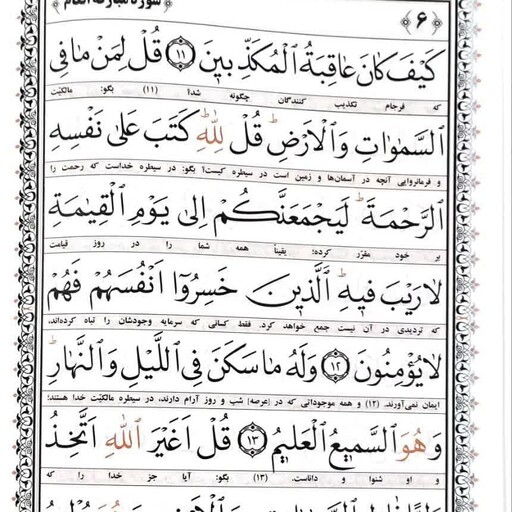 ﴿٦﴾ سورة مباركة انعام
كَيْفَ كَانَ عَاقِبَةُ الْمُكَذِّبِينَ ﴿١١﴾ قُلْ لِمَنْ مَا فِي
که فرجام تکذیب کنندگان چگونه شد! (۱۱) بگو: مالکیّت
السَّمٰوَاتِ وَالْاَرْضِ ۖ قُلْ لِلّٰهِ ۚ كَتَبَ عَلٰى نَفْسِهِ
و فرمانروایی آنچه در آسمان‌ها و زمین است در سیطره کیست؟ بگو: در سیطره خداست که رحمت را
الرَّحْمَةَ ۚ لَيَجْمَعَنَّكُمْ اِلٰى يَوْمِ الْقِيٰمَةِ
بر خود مقرّر کرده؛ یقیناً همه شما را در روز قیامت
لَا رَيْبَ فِيهِ ۚ اَلَّذِينَ خَسِرُوٓا اَنْفُسَهُمْ فَهُمْ
که تردیدی در آن نیست جمع خواهد کرد. فقط کسانی که سرمایه وجودشان را تباه کرده‌اند،
لَا يُؤْمِنُونَ ﴿١٢﴾ وَلَهُ مَا سَكَنَ فِي اللَّيْلِ وَالنَّهَارِ ۚ
ایمان نمی‌آورند. (۱۲) و همه موجوداتی که در [عرصه] شب و روز آرام دارند، در سیطره مالکیّت خدا هستند؛
وَهُوَ السَّمِيعُ الْعَلِيمُ ﴿١٣﴾ قُلْ اَغَيْرَ اللّٰهِ اَتَّخِذُ
و او شنوا و داناست. (۱۳) بگو: آیا جز خدا را که